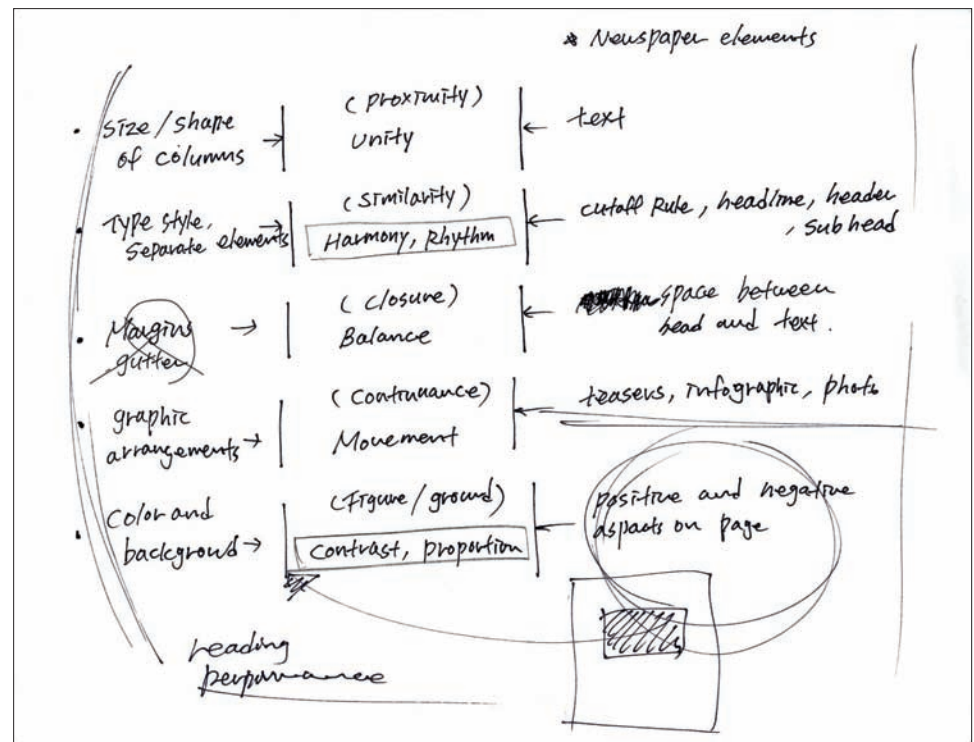 * Newspaper elements
• Size/shape of columns → (proximity) Unity ← text
• Type style, Separate elements → (similarity) Harmony, Rhythm ← cutoff Rule, headline, header, subhead
• Margins gutter → (closure) Balance ← space between head and text.
• graphic arrangements → (continuance) Movement ← teasers, infographic, photo
• color and background → (Figure/ground) contrast, proportion ← positive and negative aspacts on page